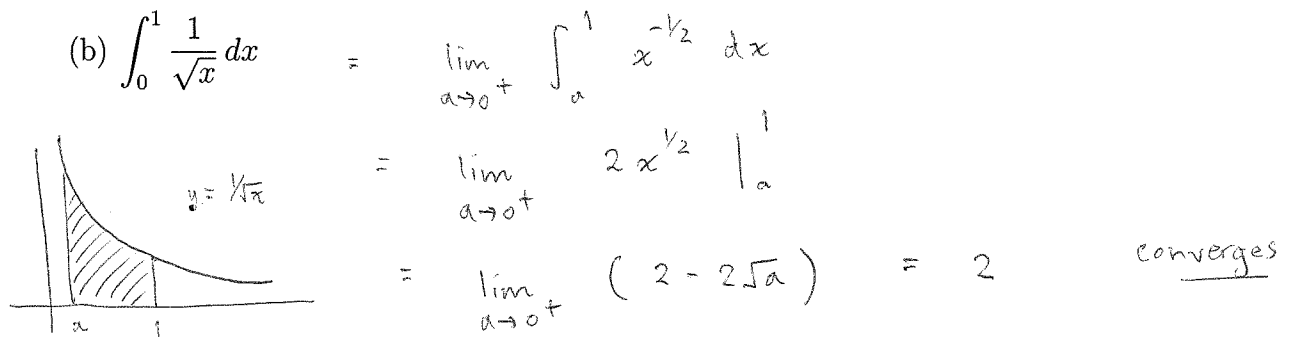 (b) ∫₀¹ 1/√x dx = lim a→0⁺ ∫ₐ¹ x^(-1/2) dx
= lim a→0⁺ 2x^(1/2) |ₐ¹
y = 1/√x
= lim a→0⁺ (2 - 2√a) = 2 converges
a 1